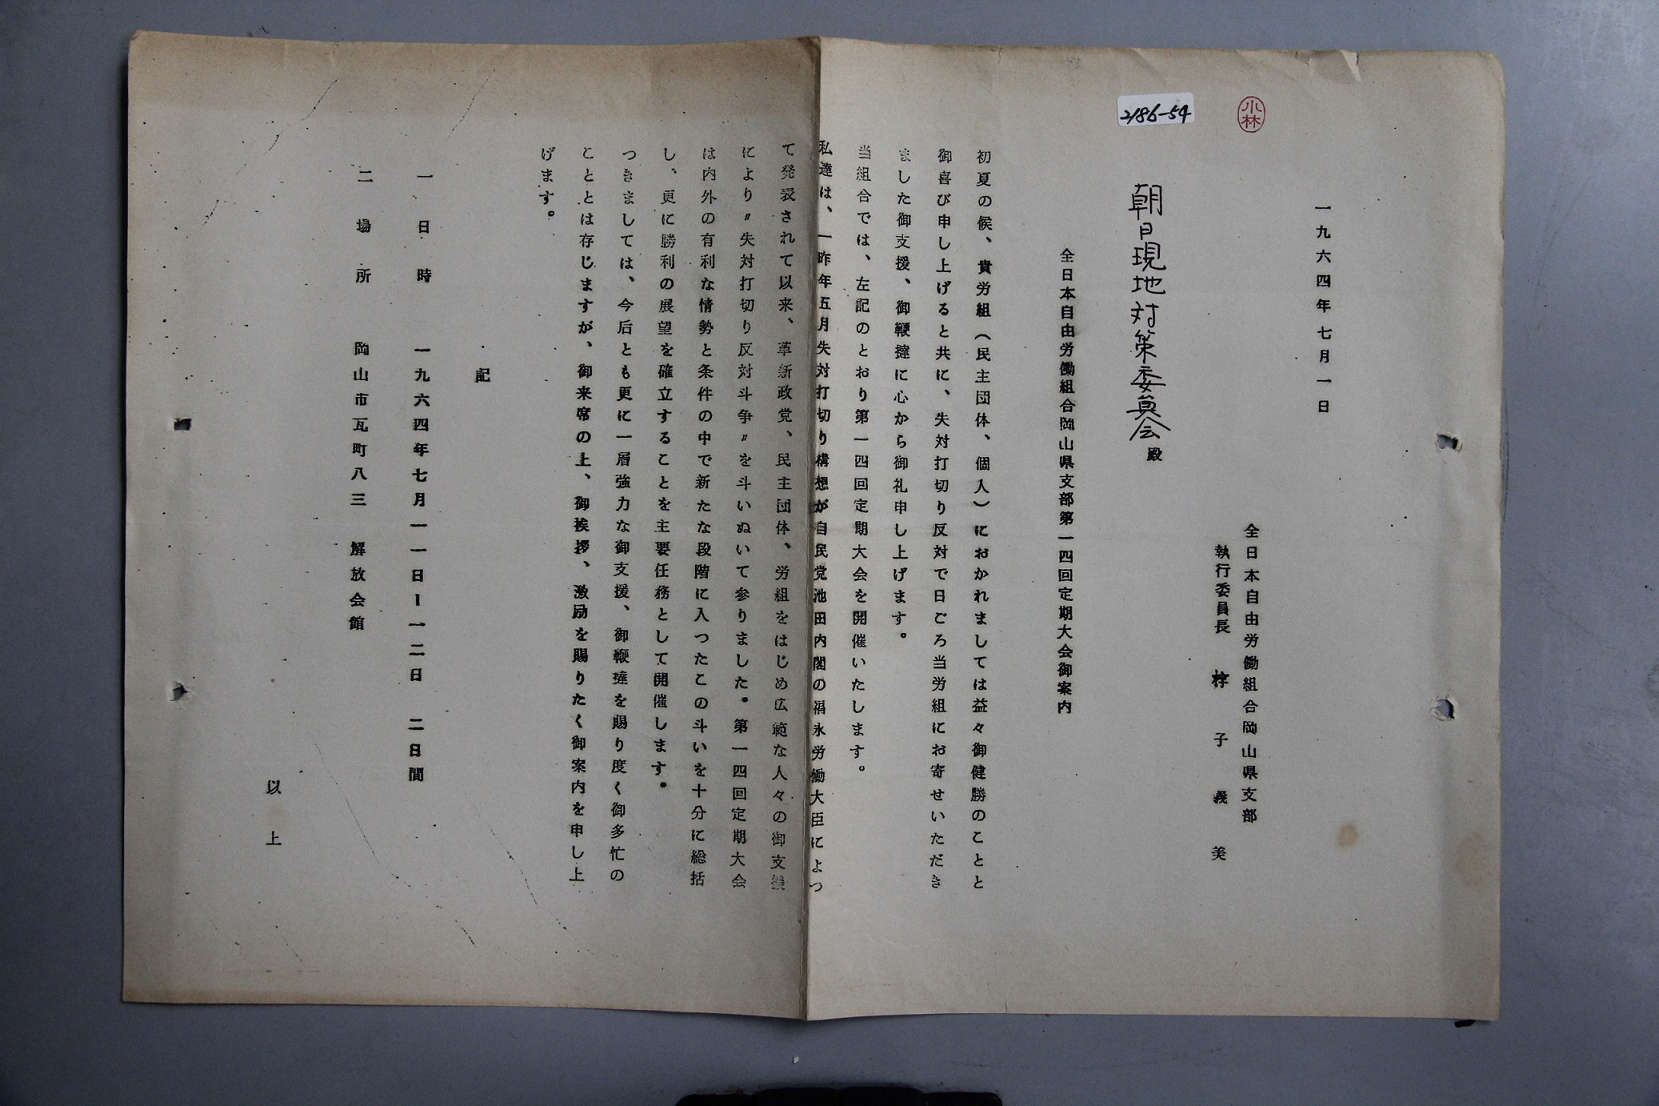 2186-54
小林
一九六四年七月一日
全日本自由労働組合岡山県支部
執行委員長 梓子義美
朝日現地対策委員会殿
全日本自由労働組合岡山県支部第一四回定期大会御案内
初夏の候、貴労組(民主団体、個人)におかれましては益々御健勝のことと
御喜び申し上げると共に、失対打切り反対で日ごろ当労組にお寄せいただき
ました御支援、御鞭撻に心から御礼申し上げます。
当組合では、左記のとおり第一四回定期大会を開催いたします。
私達は、一昨年五月失対打切り構想が自民党池田内閣の福永労働大臣によつ
て発表されて以来、革新政党、民主団体、労組をはじめ広範な人々の御支援
により〃失対打切り反対斗争〃を斗いぬいて参りました。第一四回定期大会
は内外の有利な情勢と条件の中で新たな段階に入つたこの斗いを十分に総括
し、更に勝利の展望を確立することを主要任務として開催します。
つきましては、今后とも更に一層強力な御支援、御鞭撻を賜り度く御多忙の
こととは存じますが、御来席の上、御挨拶、激励を賜りたく御案内を申し上
げます。
記
一 日時 一九六四年七月一一日ー一二日 二日間
二 場所 岡山市瓦町八三 解放会館
以上